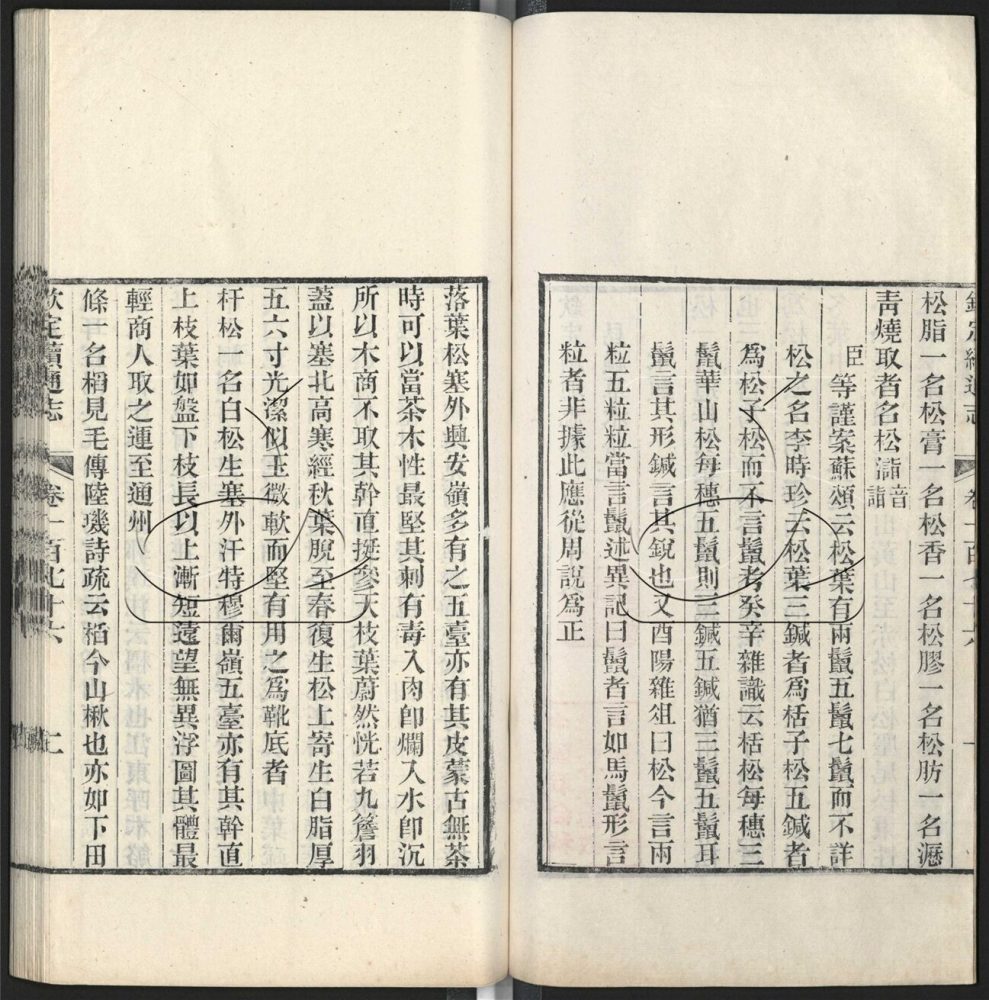 欽定續通志 卷一百七十六 一
松脂一名松膏一名松香一名松膠一名松肪一名瀝
青燒取者名松㵮音
詣
臣等謹案蘇頌云松葉有兩鬛五鬛七鬛而不詳
松之名李時珍云松葉三鍼者爲栝子松五鍼者
爲松子松而不言鬛考癸辛雜識云栝松每穗三
鬛華山松每穗五鬛則三鍼五鍼猶三鬛五鬛耳
鬛言其形鍼言其銳也又酉陽雜俎曰松今言兩
粒五粒粒當言鬛述異記曰鬛者言如馬鬛形言
粒者非據此應從周說爲正
落葉松塞外興安嶺多有之五臺亦有其皮蒙古無茶
時可以當茶木性最堅其刺有毒入肉卽爛入水卽沉
所以木商不取其幹直挺參天枝葉蔚然恍若九簷羽
蓋以塞北高寒經秋葉脫至春復生松上寄生白脂厚
五六寸光潔似玉微軟而堅有用之爲靴底者
杆松一名白松生塞外汗特穆爾嶺五臺亦有其幹直
上枝葉如盤下枝長以上漸短遠望無異浮圖其體最
輕商人取之運至通州
條一名槄見毛傳陸璣詩疏云槄今山楸也亦如下田
欽定續通志 卷一百七十六 二